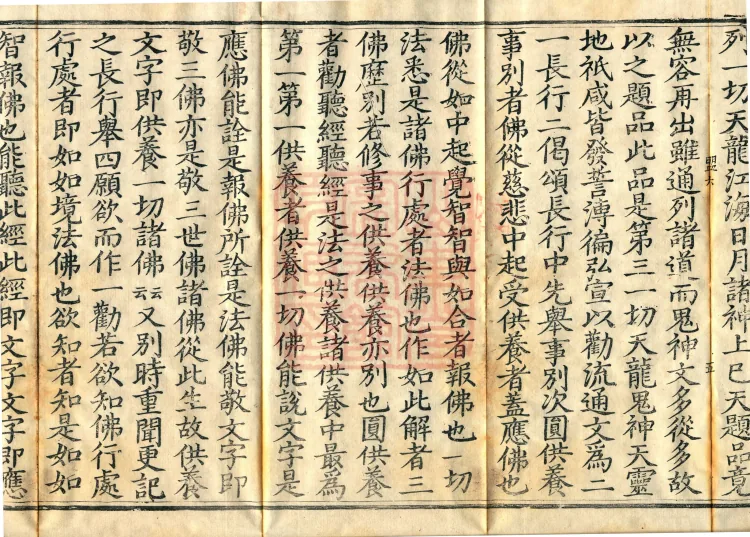 列一切天龍江海日月諸神上已天題品竟
無容再出雖通列諸道而鬼神文多從多故
以之題品此品是第三一切天龍鬼神天靈
地祇咸皆發誓溥徧弘宣以勸流通文爲二
一長行二偈頌長行中先舉事別次圓供養
事別者佛從慈悲中起受供養者蓋應佛也
佛從如中起覺智智與如合者報佛也一切
法悉是諸佛行處者法佛也作如此解者三
佛歷別若修事之供養供養亦別也圓供養
者勸聽經聽經是法之供養諸供養中最爲
第一第一供養者供養一切佛能說文字是
應佛能詮是報佛所詮是法佛能敬文字即
敬三佛亦是敬三世佛諸佛從此生故供養
文字即供養一切諸佛云云又別時重聞更記
之長行舉四願欲而作一勸若欲知佛行處
行處者即如如境法佛也欲知者知是如如
智報佛也能聽此經此經即文字文字即應
盟六
十五